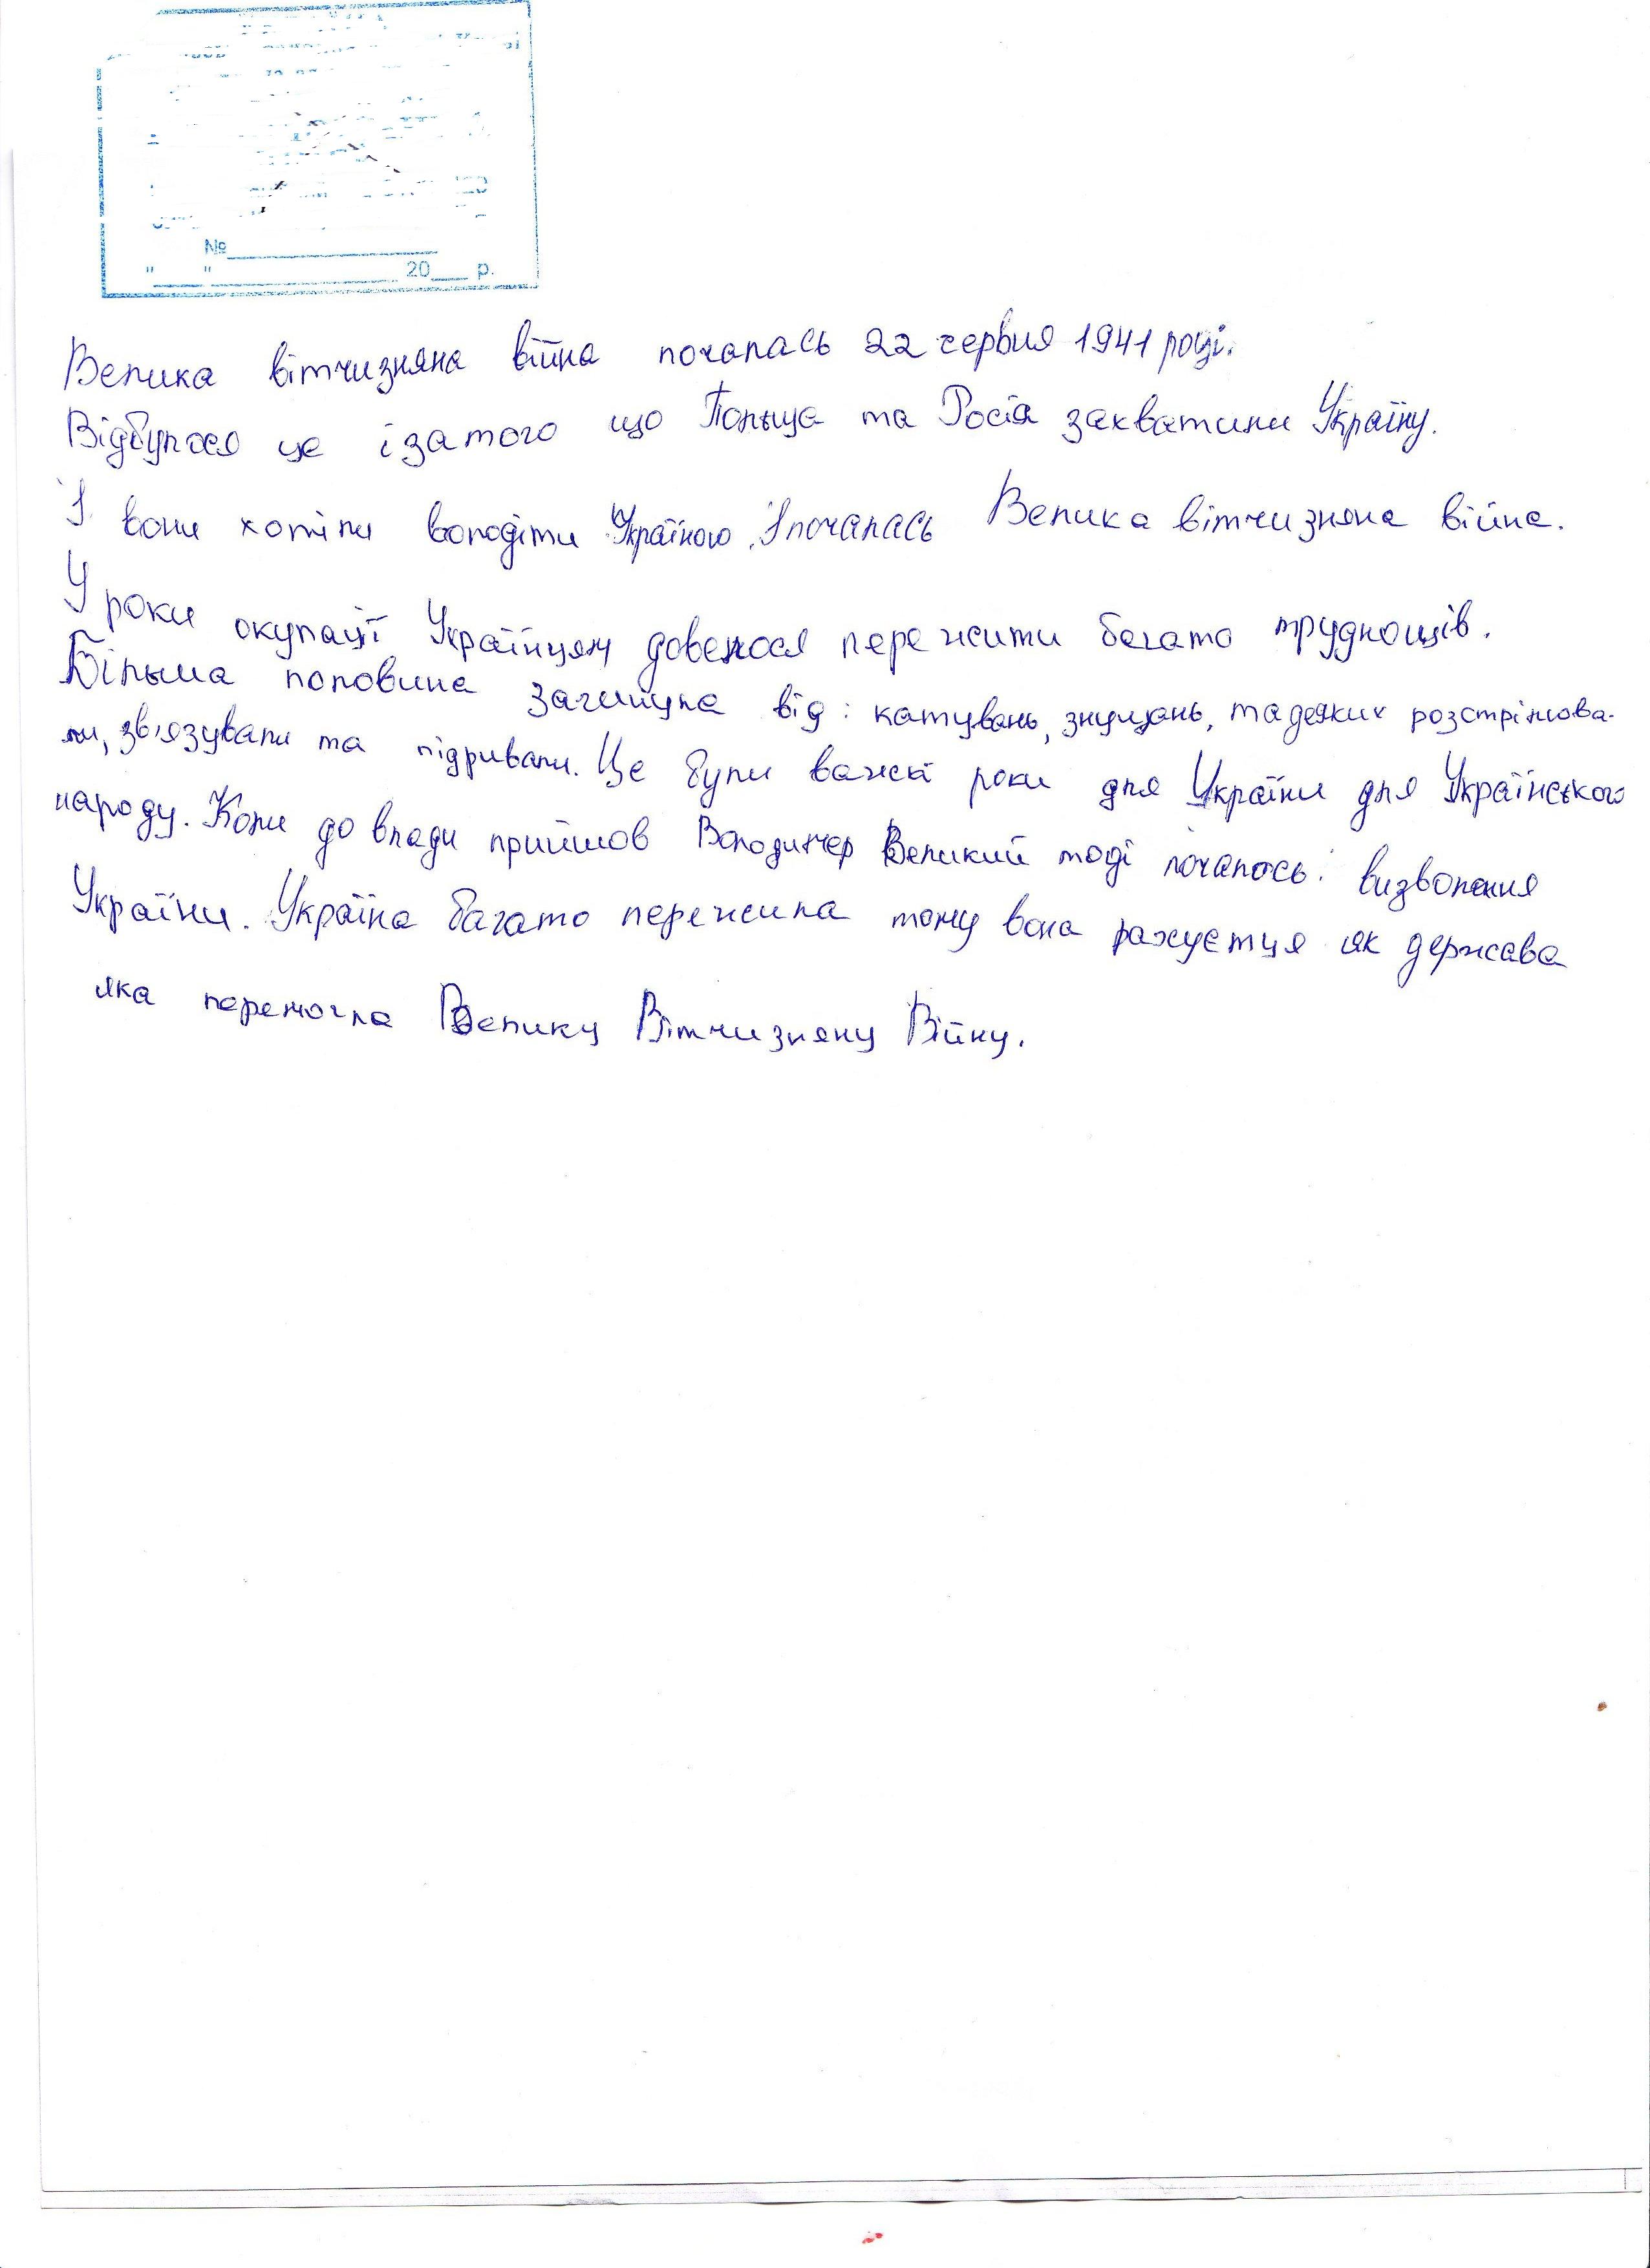 №
" " 20 р.
Велика вітчизняна війна почалась 22 червня 1941 році.
Відбулося це ізатого що Польща та Росія захватили Україну.
І вони хотіли володіти Україною. І почалась Велика вітчизняна війна.
У роки окупації Українцям довелося пережити багато труднощів.
Більша половина загинула від: катувань, знущань, та деяких розстрілюва-
ли, зв'язували та підривали. Це були важкі роки для України для Українського
народу. Коли до влади прийшов Володимер Великий тоді почалось: визволення
України. Україна багато пережила тому вона рахуєтця як держава
яка перемогла Велику Вітчизняну Війну.